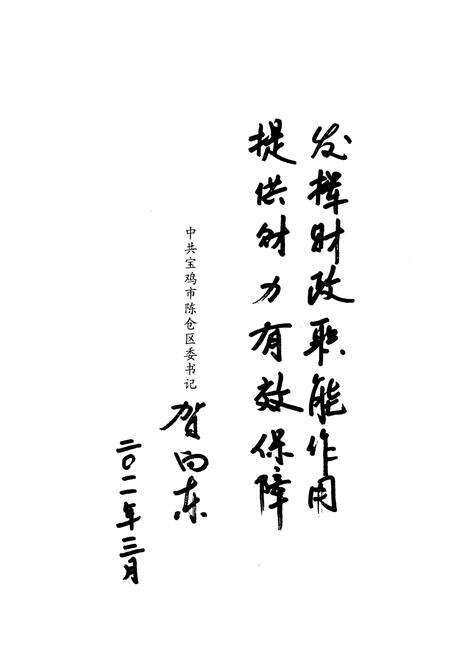 发挥财政职能作用
提供财力有效保障
中共宝鸡市陈仓区委书记
贺向东
二〇一一年三月